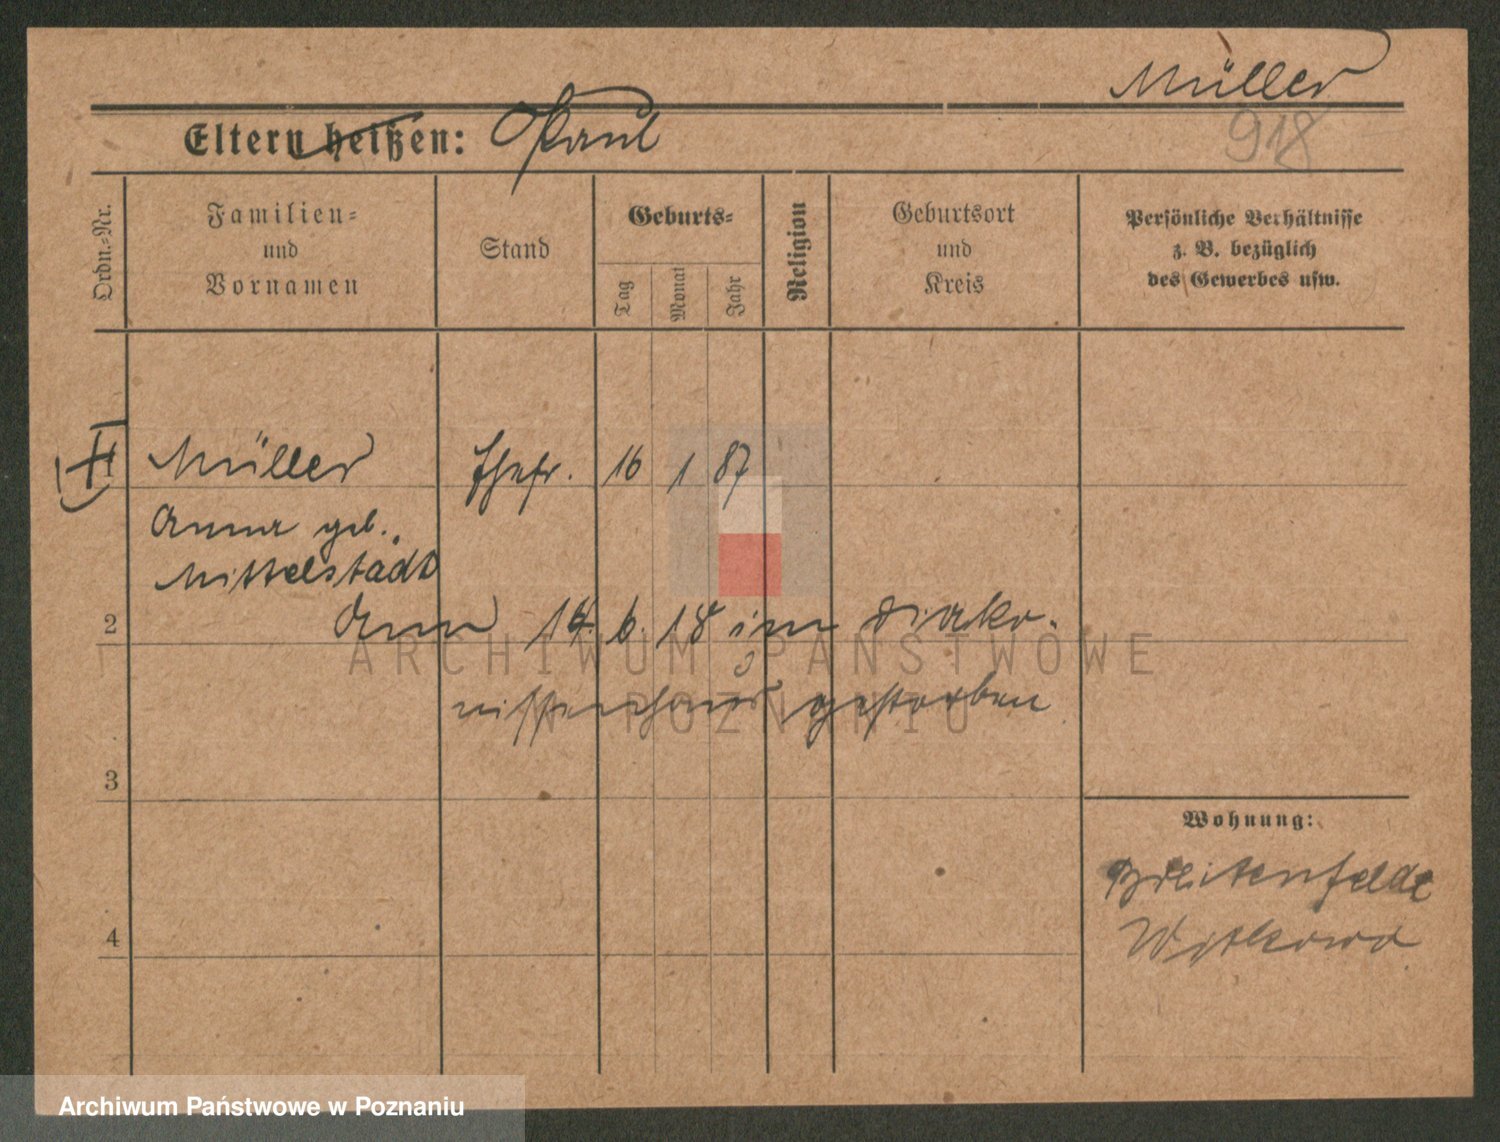 Müller
918
Eltern heißen: Paul
Ordn.-Nr.
Familien-
und
Vornamen
Stand
Geburts-
Tag
Monat
Jahr
Religion
Geburtsort
und
Kreis
Persönliche Verhältnisse
z. B. bezüglich
des Gewerbes usw.
1 Müller Ehefr. 16 1 87
Anna geb.
Mittelstädt
2
Am 14. 6. 18 im Diako-
nissenhaus gestorben
3
Wohnung:
Breitenfelde
Witkowo
4
ARCHIWUM PAŃSTWOWE
W POZNANIU
Archiwum Państwowe w Poznaniu